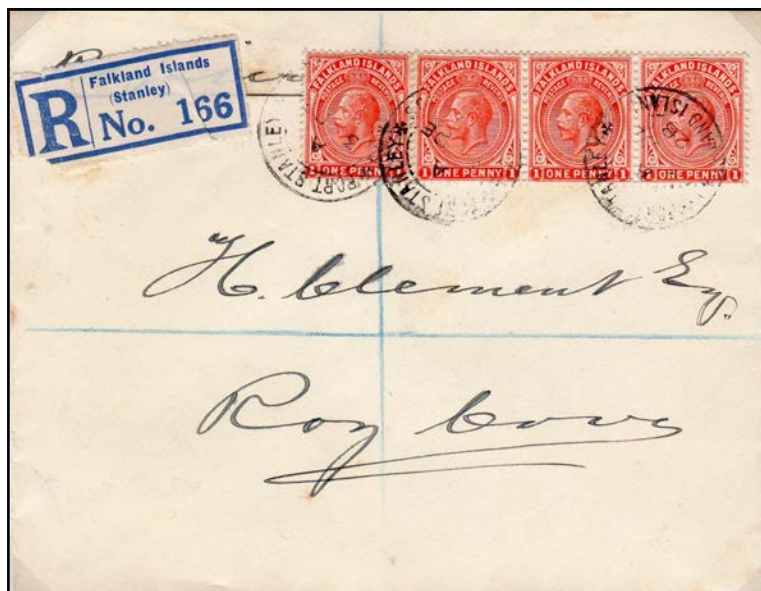 R
Falkland Islands
(Stanley)
No. 166
FALKLAND ISLANDS
POSTAGE REVENUE
1 ONE PENNY 1
FALKLAND ISLANDS
POSTAGE REVENUE
1 ONE PENNY 1
FALKLAND ISLANDS
POSTAGE REVENUE
1 ONE PENNY 1
FALKLAND ISLANDS
POSTAGE REVENUE
1 ONE PENNY 1
PORT STANLEY
PORT STANLEY
H. Clement Esq.
Roy Cove